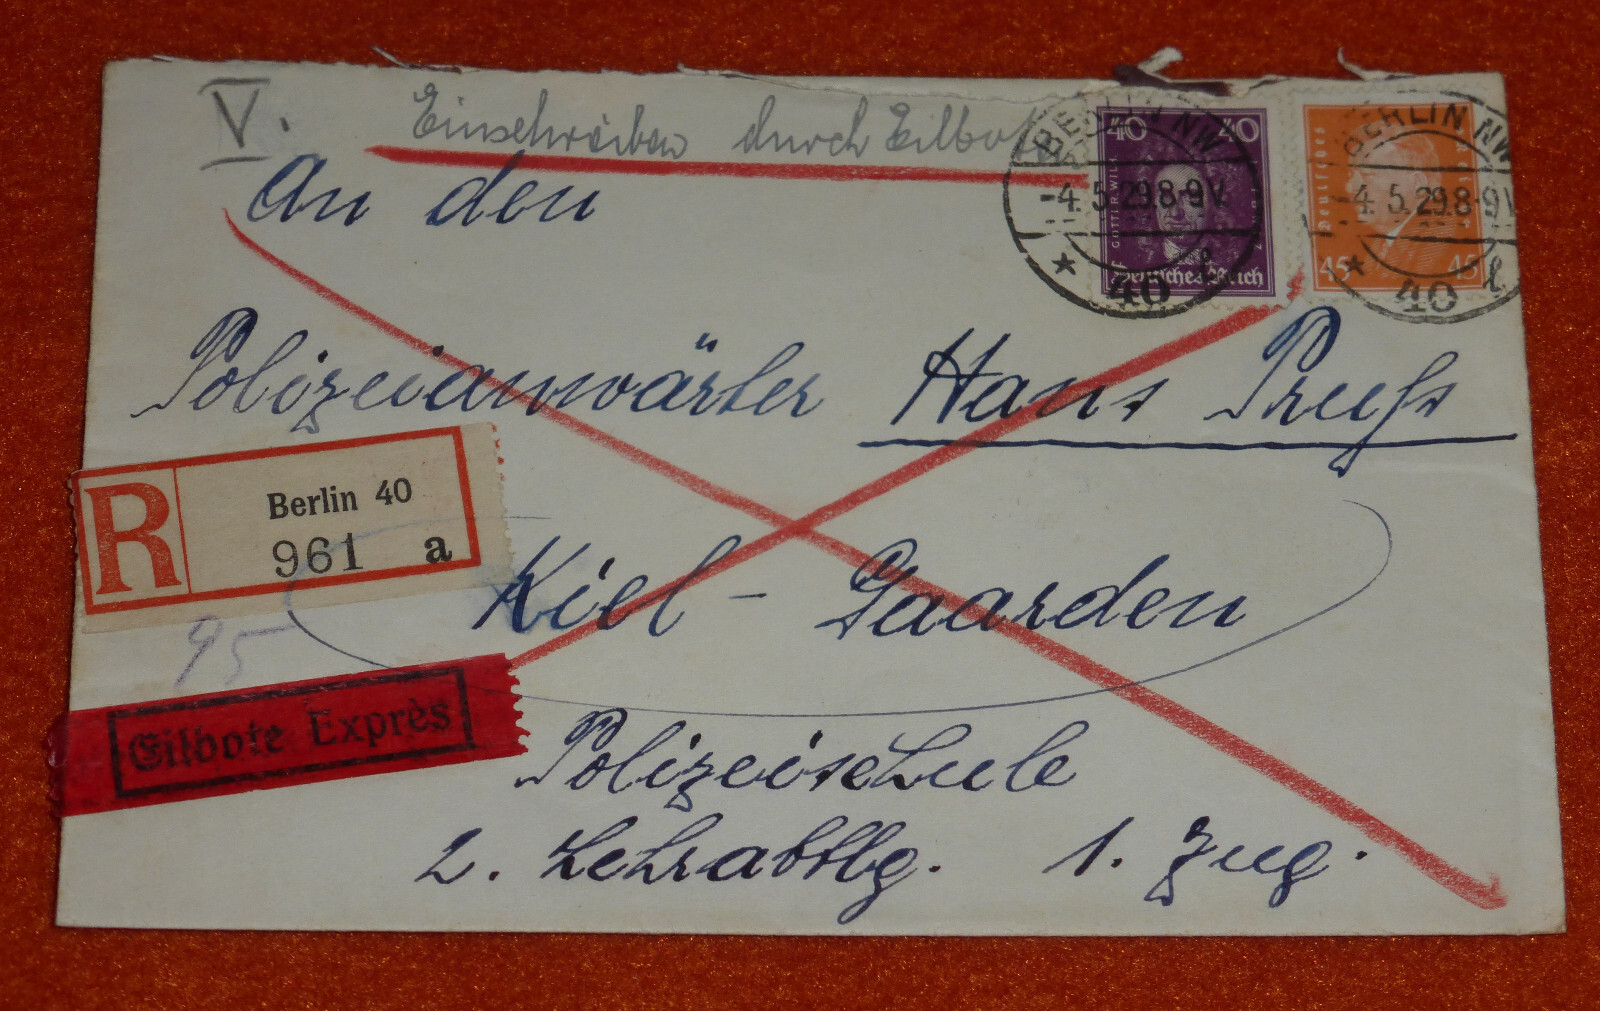 V.
Einschreiben durch Eilbote
An den
Polizeianwärter Hans Preuß
Kiel - Gaarden
Polizeischule
2. Lehrabtlg. 1. Zug.
R
Berlin 40
961 a
95
Eilbote Exprès
40 40
Deutsches Reich
BERLIN NW
-4.5.29.8-9V
* 40
45 45
Deutsches
BERLIN NW
-4.5.29.8-9V
* 40 l